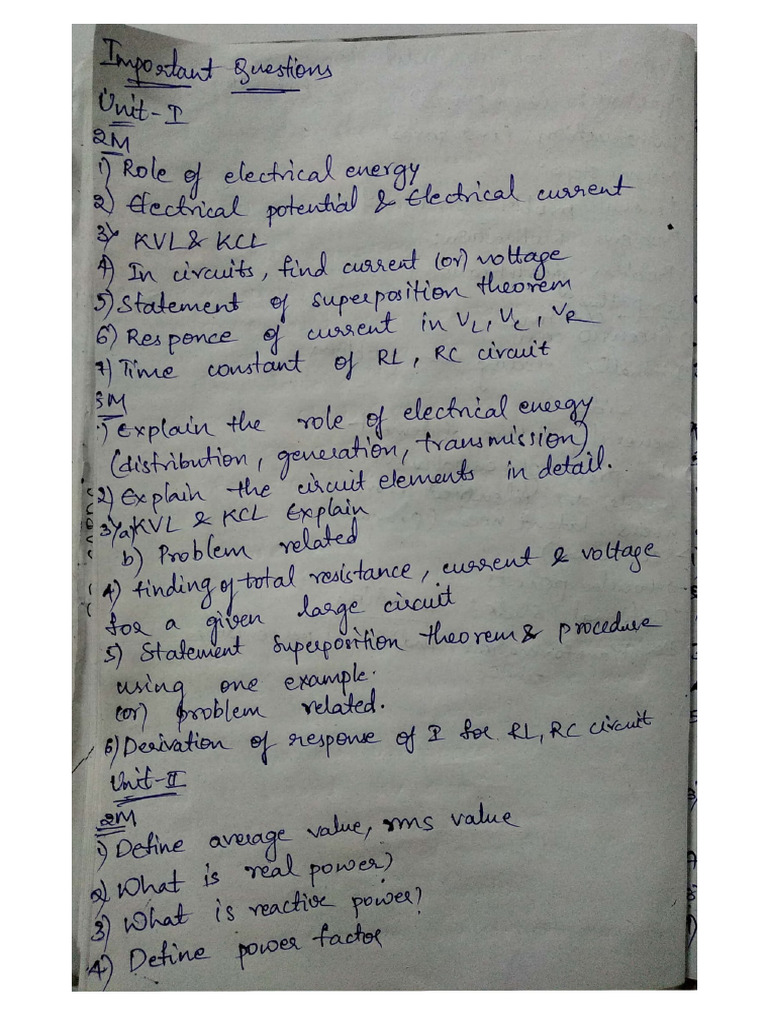 Important Questions
Unit-I
2M
1) Role of electrical energy
2) Electrical potential & Electrical current
3) KVL & KCL
4) In circuits, find current (or) voltage
5) Statement of superposition theorem
6) Responce of current in VL, VC, VR
7) Time constant of RL, RC circuit
5M
1) Explain the role of electrical energy
(distribution, generation, transmission)
2) Explain the circuit elements in detail.
3) a) KVL & KCL Explain
b) Problem related
4) finding of total resistance, current & voltage
for a given large circuit
5) Statement Superposition theorem & procedure
using one example.
(or) problem related.
6) Derivation of response of I for RL, RC circuit
Unit-II
2M
1) Define average value, rms value
2) What is real power?
3) What is reactive power?
4) Define power factor